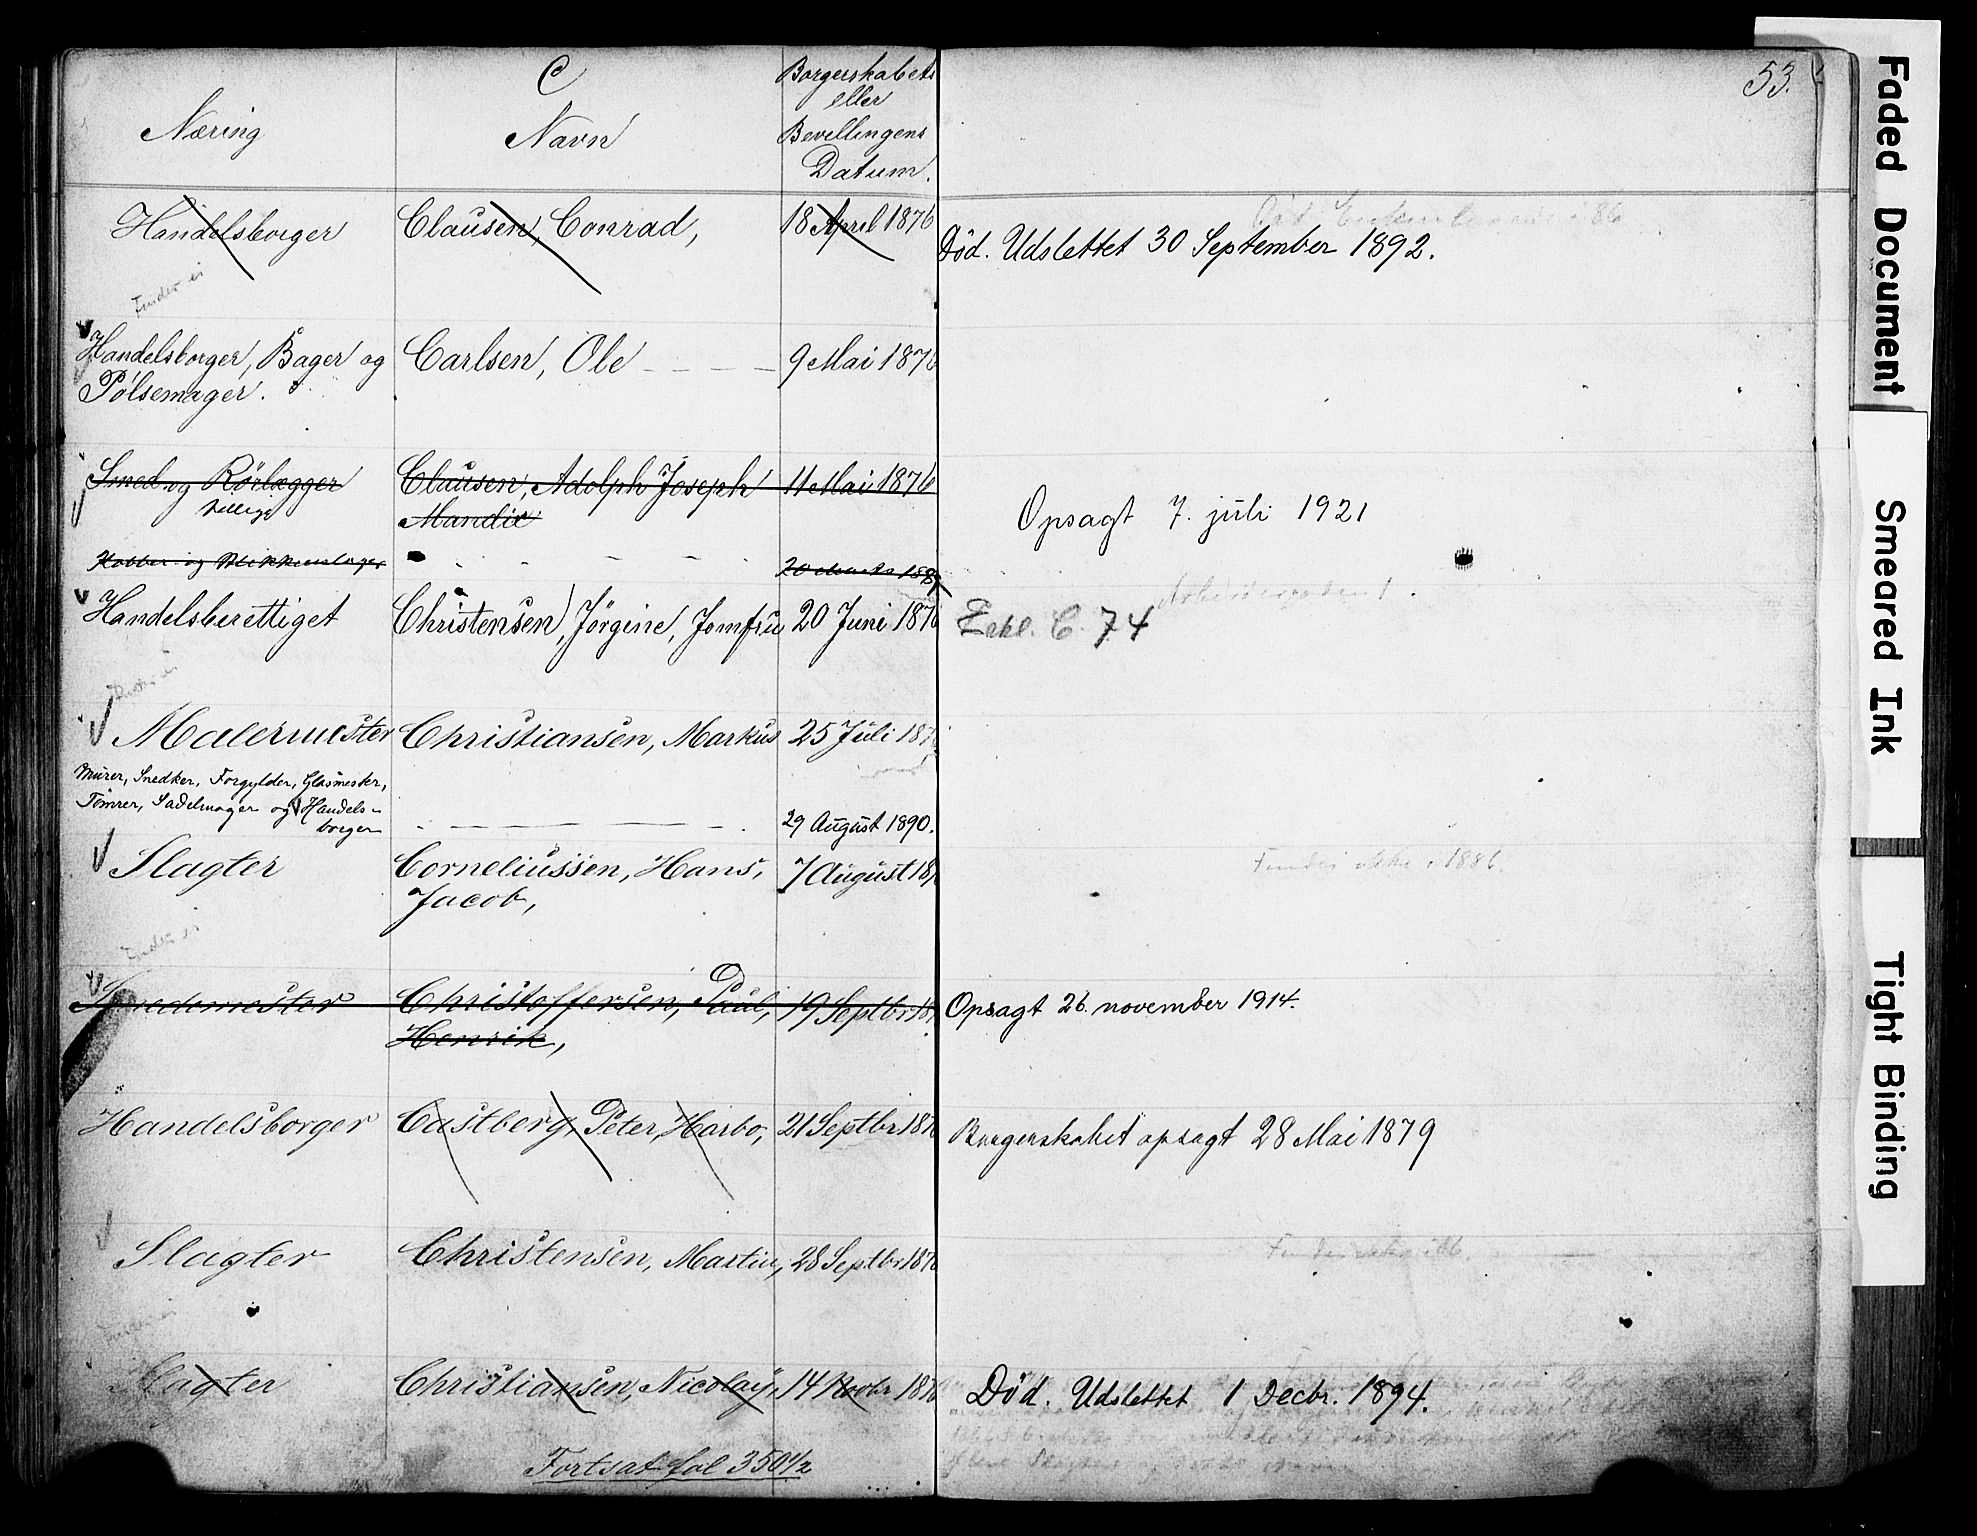 53.
C
Næring
Navn
Borgerskabets
eller
Bevillingens
Datum.
Handelsborger
Clausen, Conrad,
18 April 1876
Død. Udslettet 30 September 1892.
Findes ei
Handelsborger, Bager og
Pølsemager.
Carlsen, Ole
9 Mai 1876
Smed og Rørlægger
tillige
Clausen, Adolph Joseph
Mandix
11 Mai 1876
Opsagt 7. juli 1921
Kobber og Blikkenslager
20 Marts 188
Handelsberettiget
Christensen, Jörgine, Jomfru
20 Juni 1876
C. 74
Malermester
Christiansen, Markus
25 Juli 187
Murer, Snedker, Forgylder, Glasmester,
Tømrer, Sadelmager og Handels-
borger
29 August 1890.
Slagter
Corneliussen, Hans,
Jacob,
7 August 18
Findes ikke i 1886.
Findes ei
Smedemester
Christoffersen, Paul,
Henrik,
19 Septbr 18
Opsagt 26. november 1914.
Handelsborger
Castberg, Peter, Harbo,
21 Septbr 187
Borgerskabet opsagt 28 Mai 1879
Slagter
Christensen, Martin,
28 Septbr 187
Slagter
Christiansen, Nicolay,
14 Novbr 187
Død. Udslettet 1 Decbr. 1894.
Fortsat fol 350 1/2
Faded Document
Smeared Ink
Tight Binding